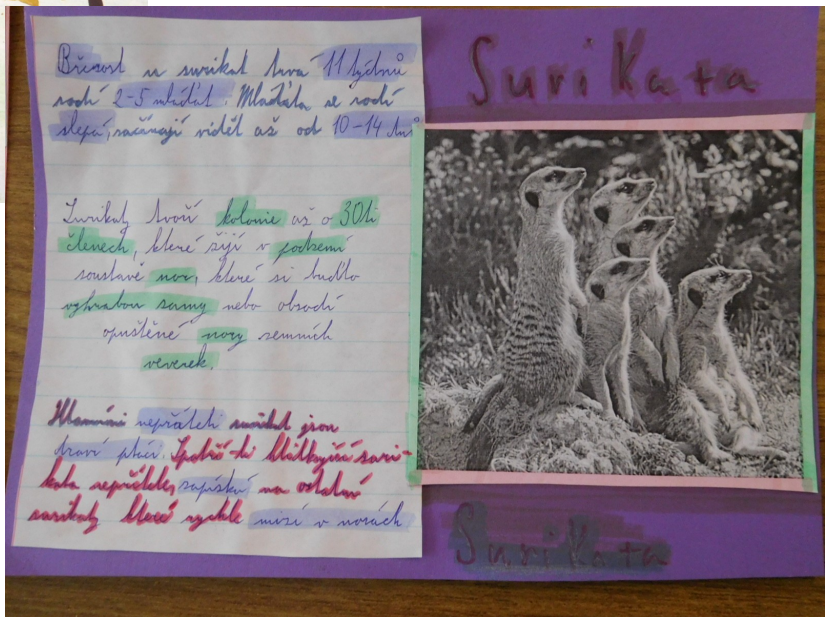 Březost u surikat trvá 11 týdnů
rodí 2-5 mláďat. Mláďata se rodí
slepá, začínají vidět až od 10-14 dnů
Surikaty tvoří kolonie až o 30ti
členech, které žijí v podzemí
soustavě nor, které si buďto
vyhrabou samy nebo obsadí
opuštěné nory zemních
veverek.
Hlavními nepřáteli surikat jsou
draví ptáci. Spatří-li hlídkující suri-
kata nepřítele, zapíská na ostatní
surikaty které rychle mizí v norách
Surikata
Surikata